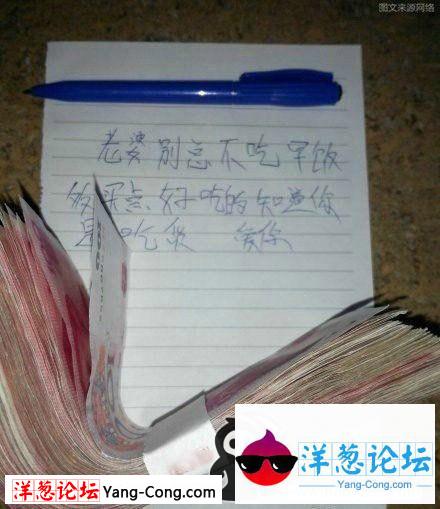 图文来源网络
老婆别总不吃早饭
多买点好吃的知道你
是吃货 爱你
洋葱论坛 Yang-Cong.com
洋葱论坛
Yang-Cong.com